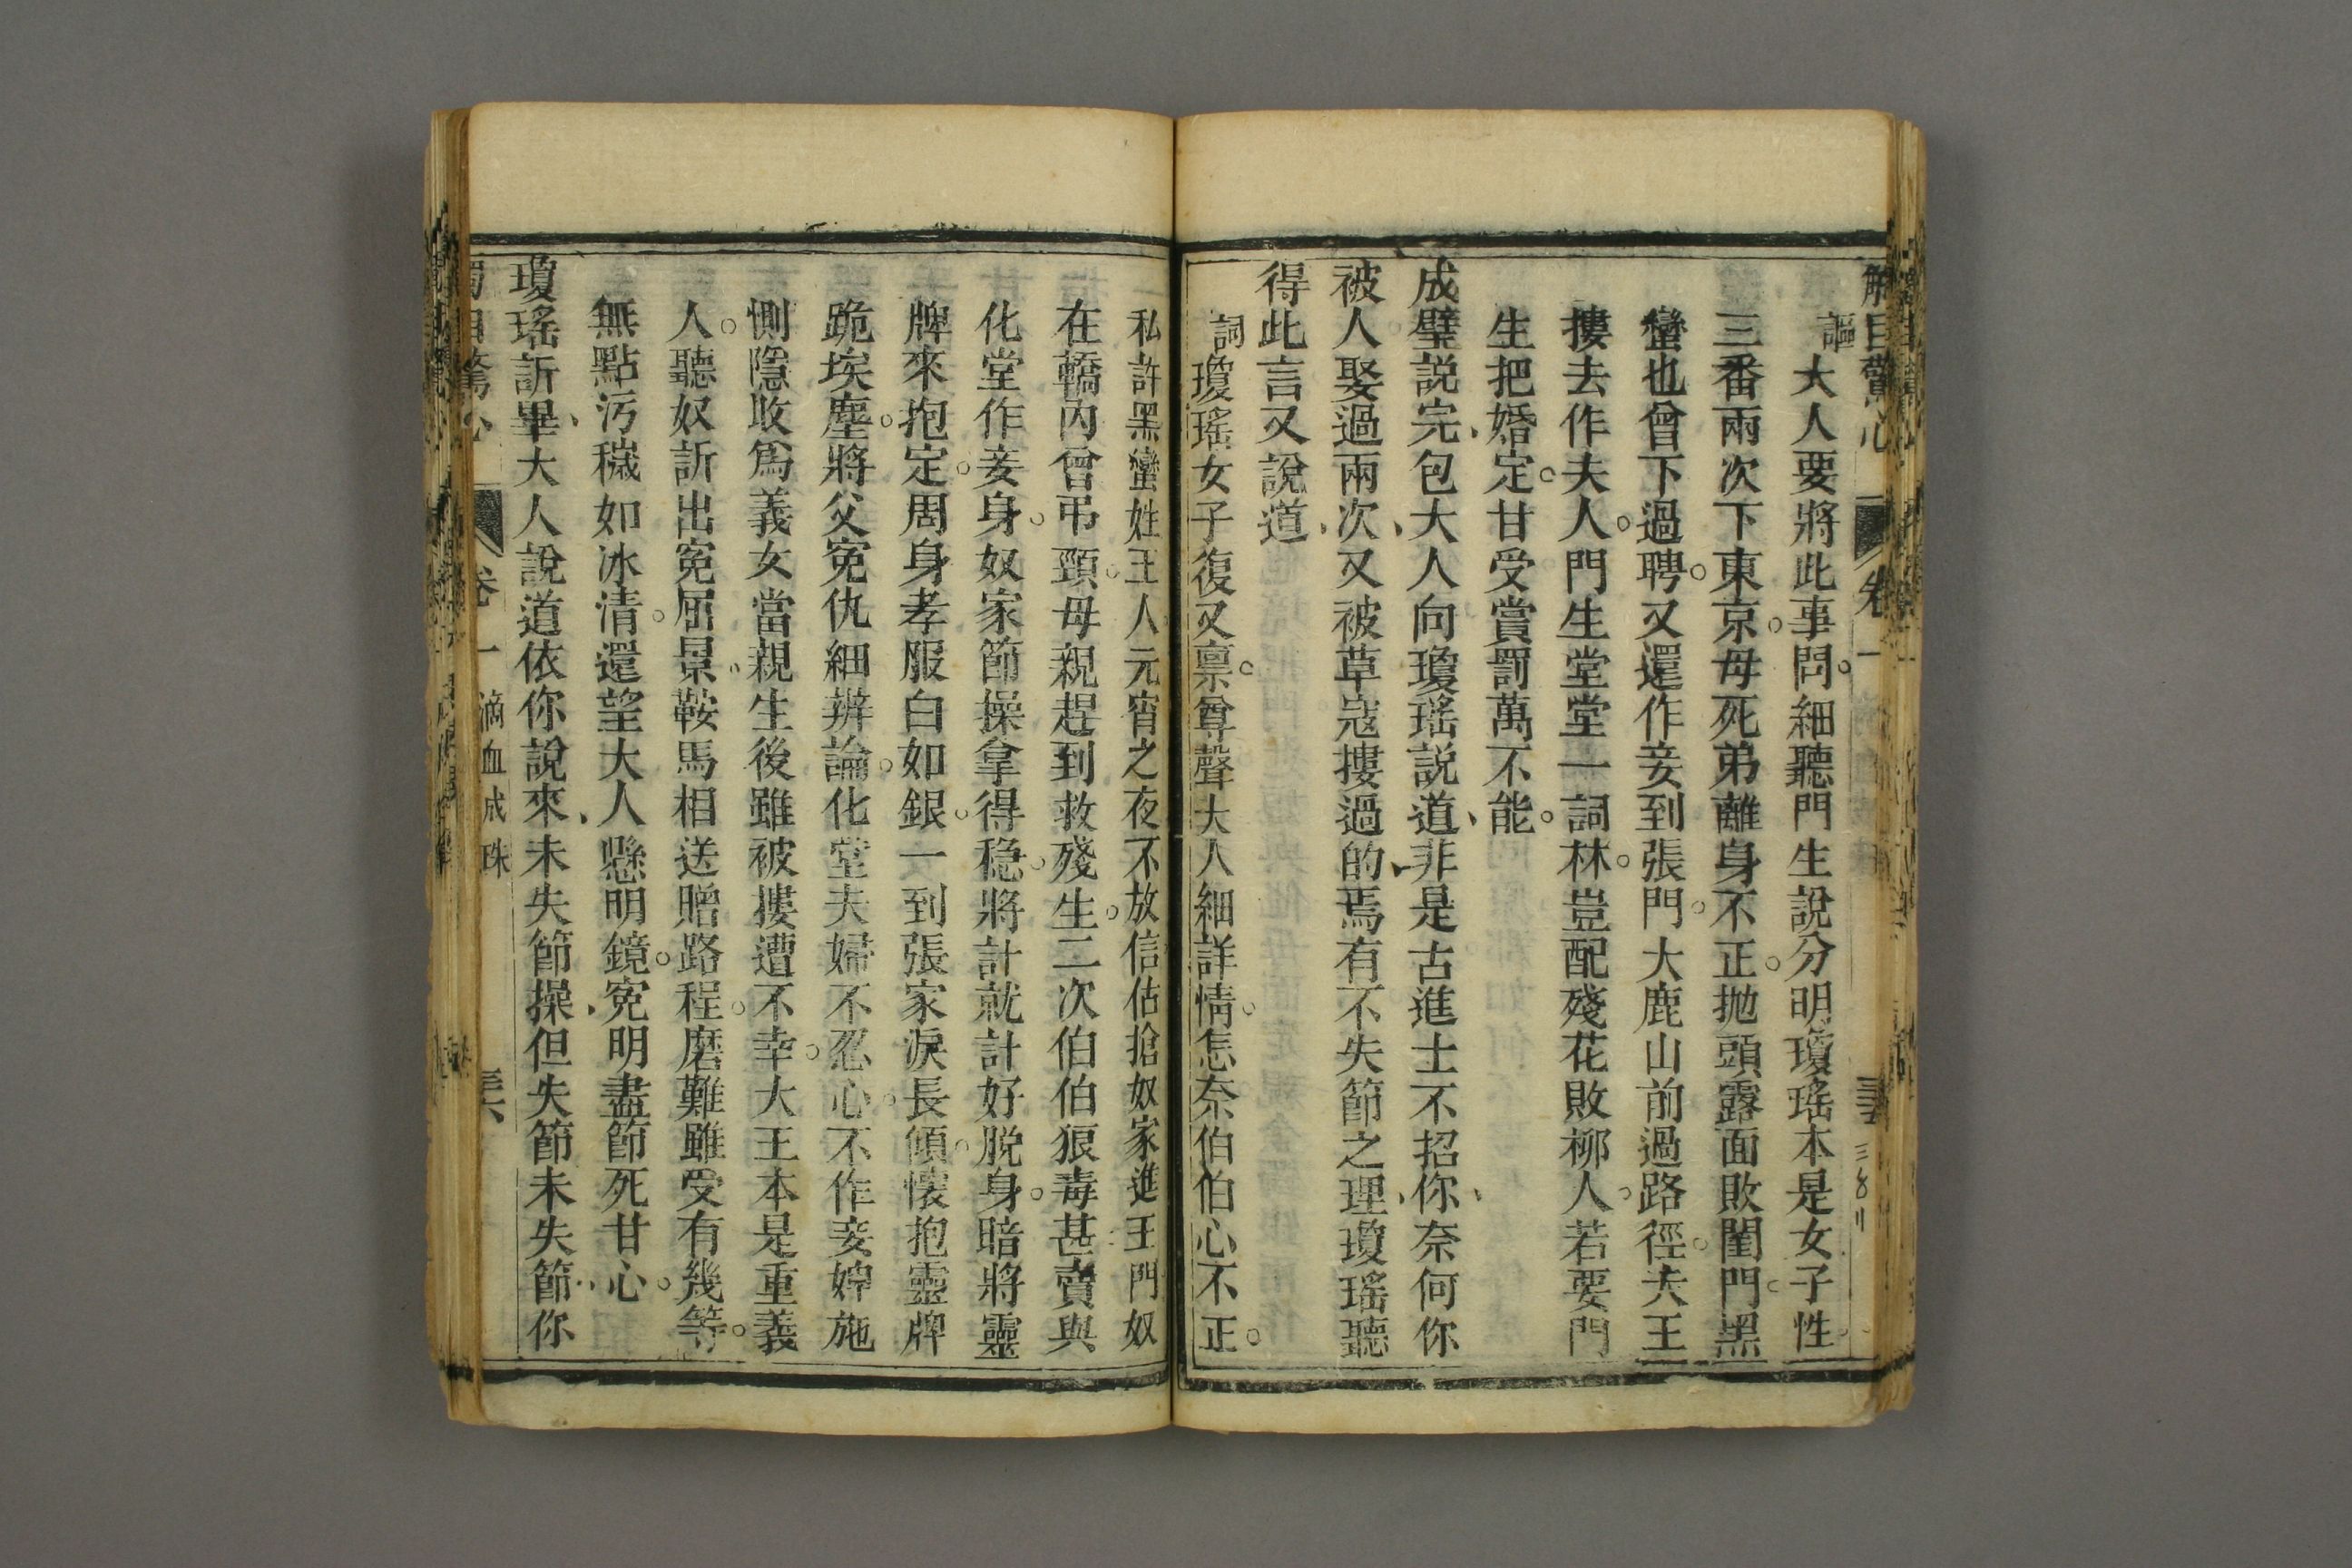 解目警心 卷一
謳大人要將此事問。細聽門生說分明瓊瑤本是女子性。
三番兩次下東京。母死弟離身不正。抛頭露面敗閨門。黑
蠻也曾下過聘。又還作妾到張門。大鹿山前過路徑。大王
摟去作夫人。門生堂堂一詞林。豈配殘花敗柳人。若要門
生把婚定。甘受賞罰萬不能。
成璧說完、包大人向瓊瑤說道、非是古進士不招你、奈何你
被人娶過兩次、又被草寇摟過的、焉有不失節之理、瓊瑤聽
得此言又說道、
詞瓊瑤女子復又禀。尊聲大人細詳情。怎奈伯伯心不正。
私許黑蠻姓王人。元宵之夜不放信。估搶奴家進王門奴
在轎內曾弔頸。母親趕到救殘生。二次伯伯狠毒甚賣與
化堂作妾身。奴家節操拿得穏。將計就計好脱身。暗將靈
牌來抱定。周身孝服白如銀。一到張家淚長傾。懷抱靈牌
跪埃塵。將父寃仇細辨論。化堂夫婦不忍心。不作妾婢施
惻隱收爲義女當親生後雖被摟遭不幸。大王本是重義
人。聽奴訴出寃屈景。鞍馬相送贈路程。磨難雖受有幾等。
無點污穢如冰清。還望大人懸明鏡。寃明盡節死甘心。
瓊瑤訴畢、大人說道依你說來、未失節操、但失節未失節、你
觸目驚心 卷一 滴血成珠 三六